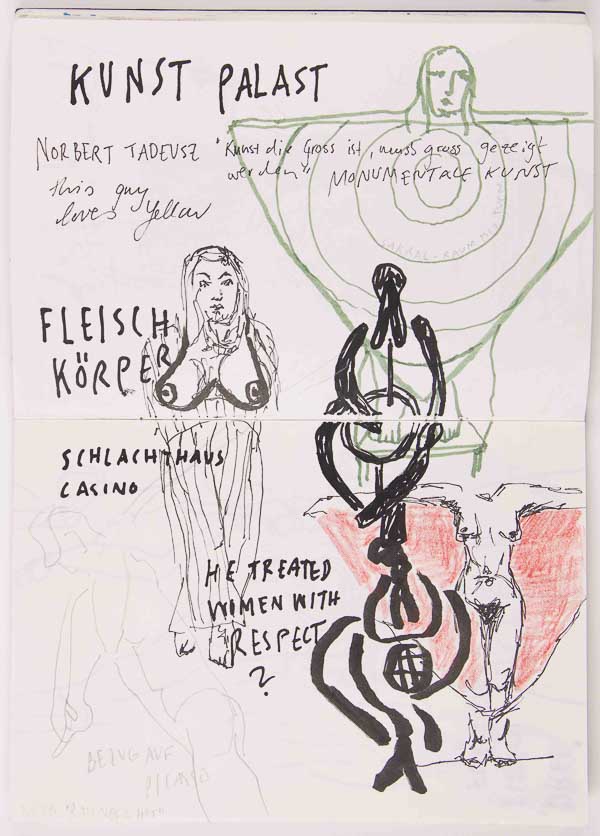 KUNST PALAST
NORBERT TADEUSZ "Kunst die Gross ist, muss gross gezeigt
werden" MONUMENTALE KUNST
this guy
loves yellow
SAKRAL-RAUM
FLEISCH
KÖRPER
SCHLACHTHAUS
CASINO
HE TREATED
WOMEN WITH
RESPECT
?
BEZUG AUF
PICASSO